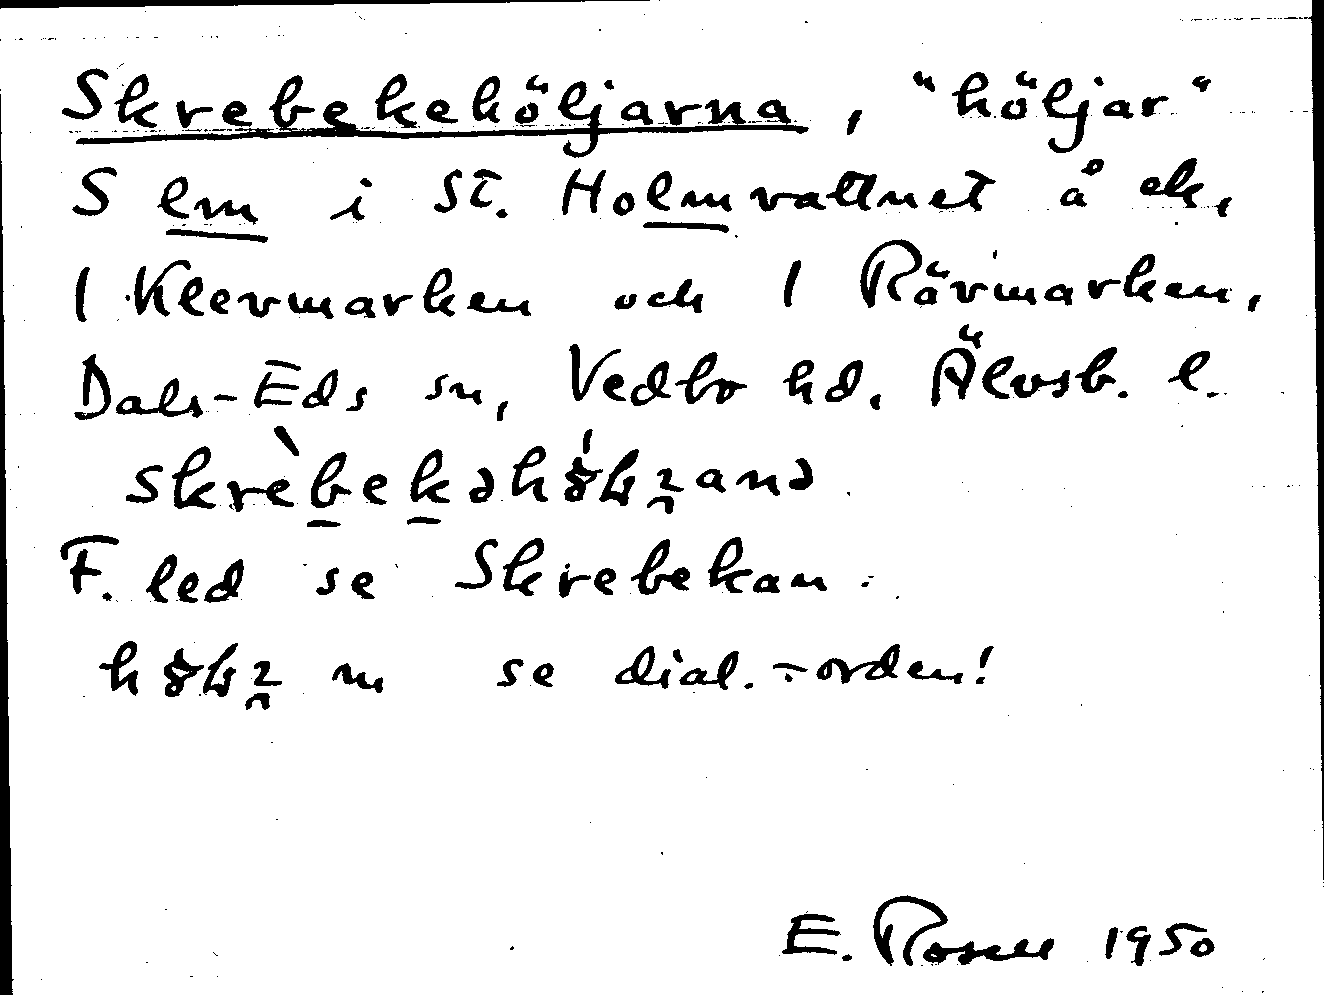 Skrebekehöljarna, "höljar"
S lm i St. Holmvattnet å ek,
1 Klevmarken och 1 Rävmarken,
Dals-Eds sn, Vedbo hd, Älvsb. l.
skrèbekəh
F. led se Skrebekan.
m se dial.-orden!
E. Rosell 1950